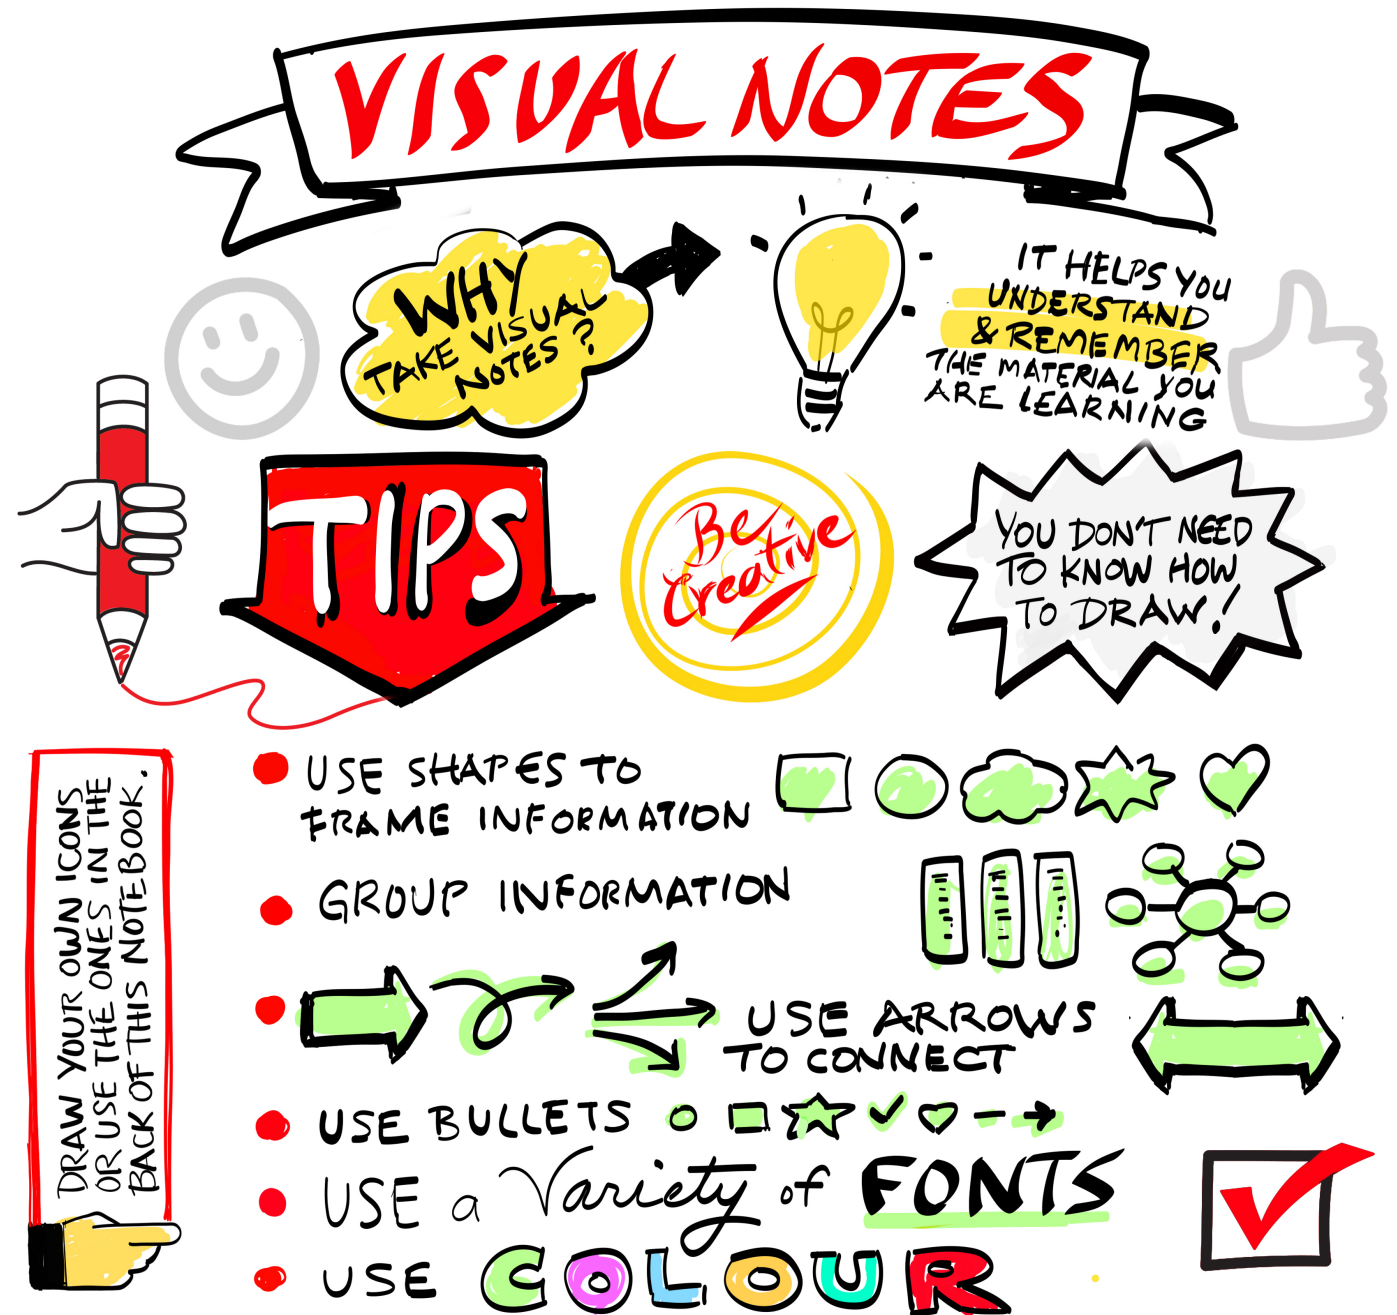 VISUAL NOTES
WHY
TAKE VISUAL
NOTES?
IT HELPS YOU
UNDERSTAND
& REMEMBER
THE MATERIAL YOU
ARE LEARNING
TIPS
Be
Creative
YOU DON'T NEED
TO KNOW HOW
TO DRAW!
DRAW YOUR OWN ICONS
OR USE THE ONES IN THE
BACK OF THIS NOTEBOOK.
USE SHAPES TO
FRAME INFORMATION
GROUP INFORMATION
USE ARROWS
TO CONNECT
USE BULLETS
USE a Variety of FONTS
USE COLOUR